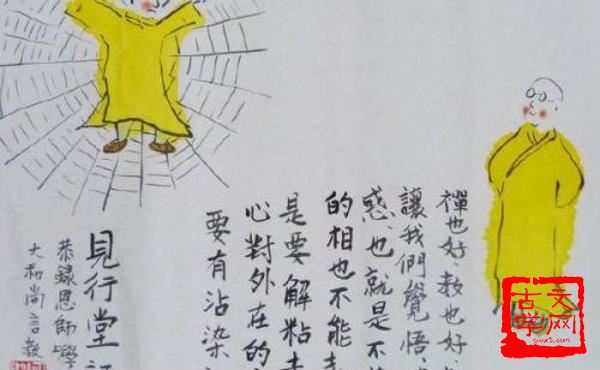 禪也好、教也好、
讓我們覺悟、
惑、也就是不
的相也不能
是要解粘去
心對外在的
要有沾染
見行堂
恭錄恩師學
大和尚言教
古文学网